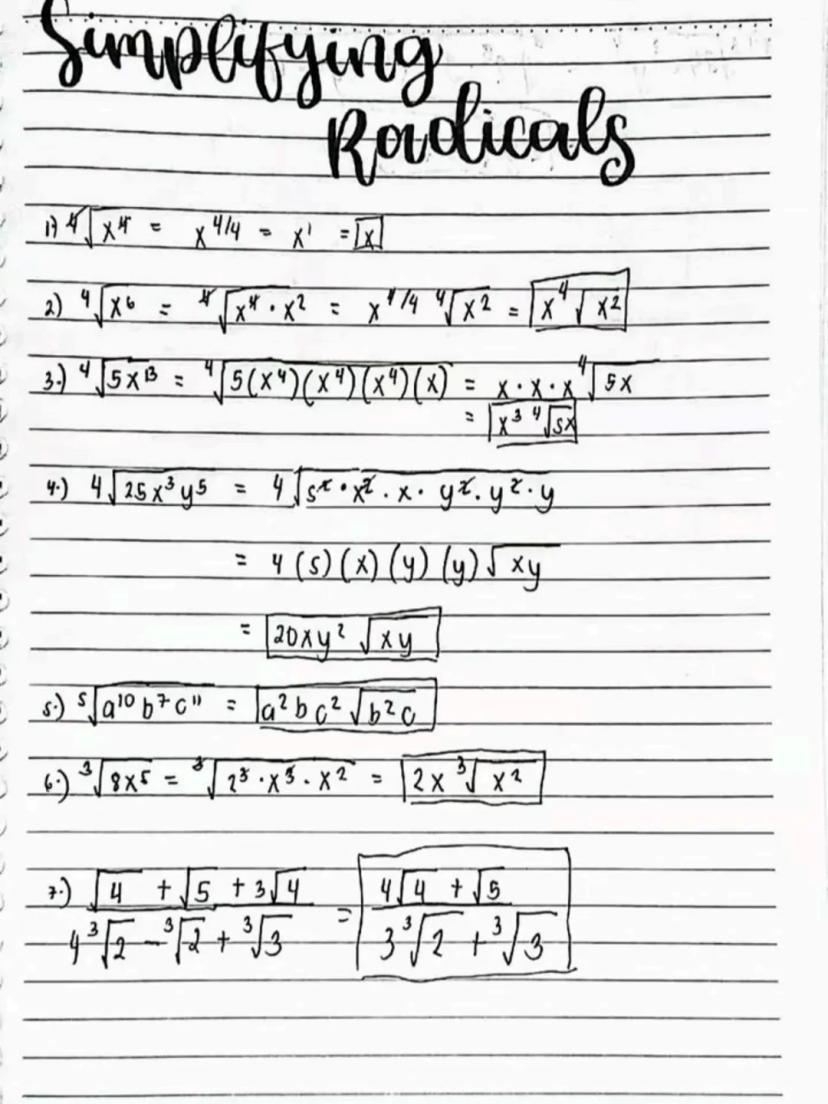 Simplifying
Radicals
1) ⁴√x⁴ = x^4/4 = x¹ = x
2) ⁴√x⁶ = ⁴√x⁴ · x² = x^4/4 ⁴√x² = x ⁴√x²
3.) ⁴√5x¹³ = ⁴√5(x⁴)(x⁴)(x⁴)(x) = x · x · x ⁴√5x
= x³ ⁴√5x
4.) 4√25x³y⁵ = 4√5² · x² · x · y² · y² · y
= 4 (5) (x) (y) (y) √xy
= 20xy² √xy
5.) ⁵√a¹⁰ b⁷ c¹¹ = a² b c² √b² c
6.) ³√8x⁵ = ³√2³ · x³ · x² = 2x ³√x²
7.) √4 + √5 + 3√4 / 4 ³√2 − ³√2 + ³√3 = 4√4 + √5 / 3 ³√2 + ³√3